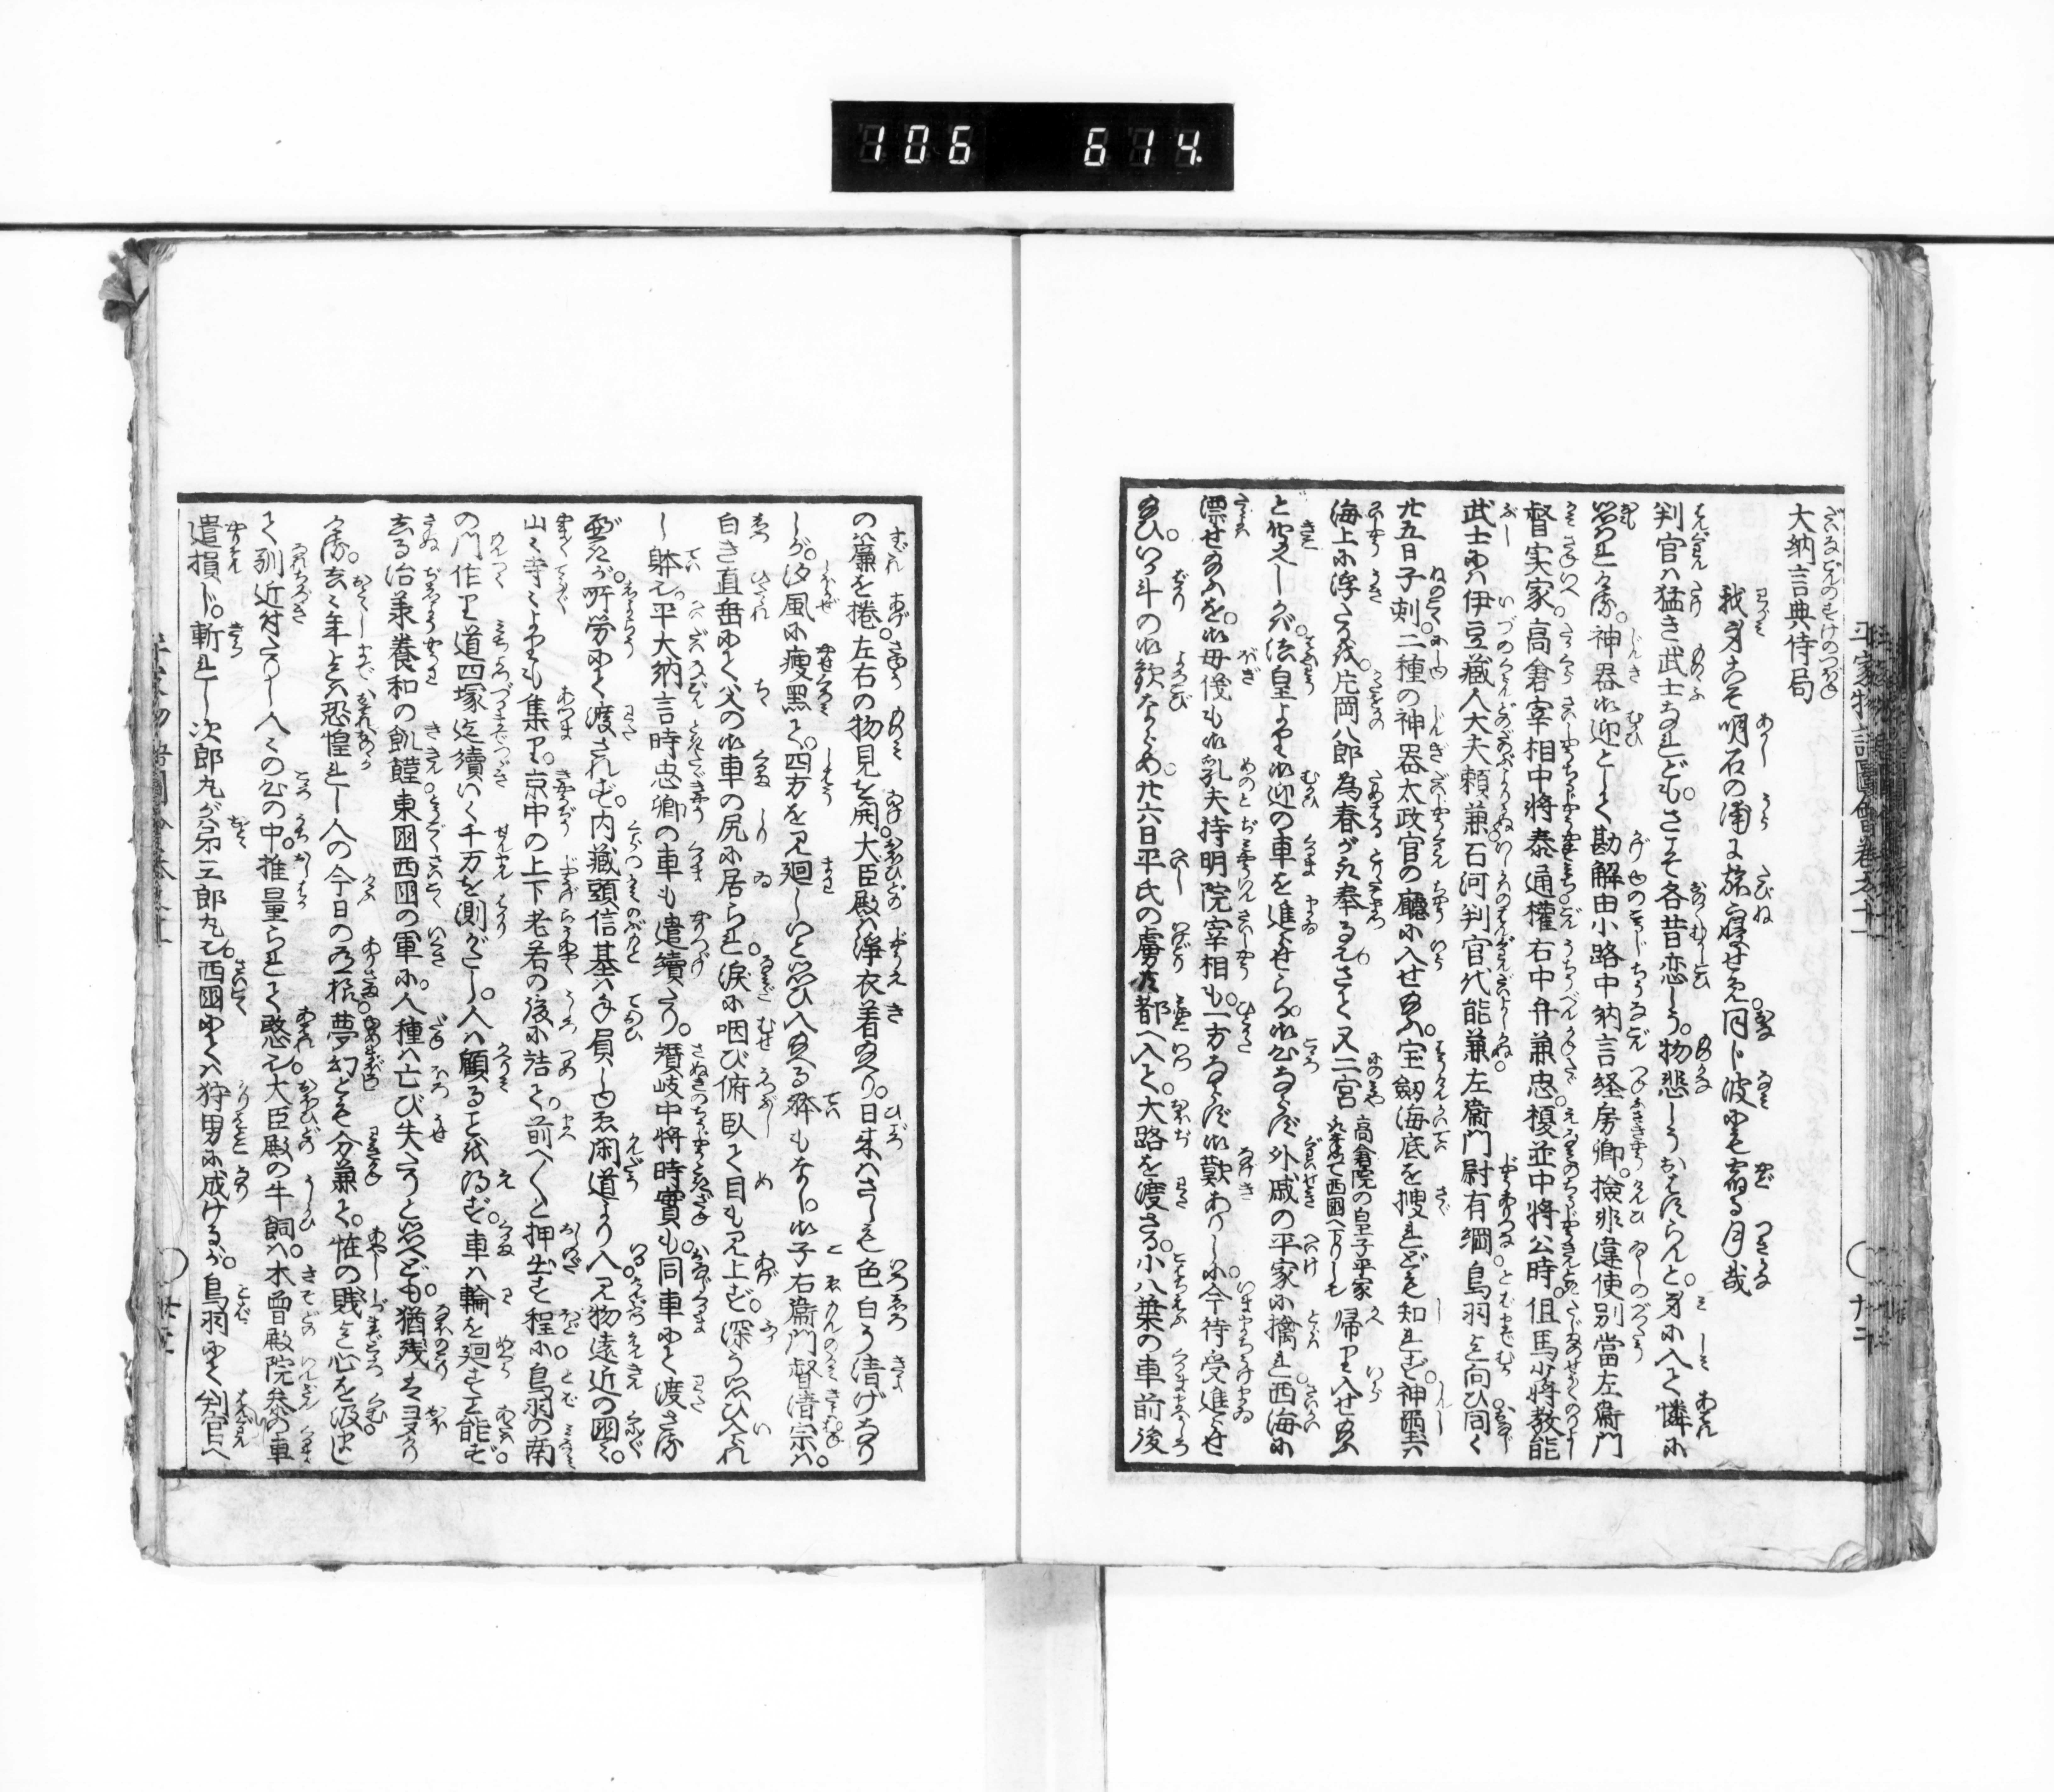 106 614
大納言典侍局
我身こそ明石の浦に旅寝せめ同じ波にも宿る月哉
判官ハ猛き武士なれども。さこそ各昔恋しう。物悲しうおはすらんと。身に入て憐に
思れける。神器御迎として勘解由小路中納言経房卿。検非違使別當左衞門
督実家。高倉宰相中将泰通權右中弁兼忠。榎並中将公時。但馬少将教能
武士にハ伊豆藏人大夫頼兼石河判官代能兼左衞門尉有綱。鳥羽に向ひ。同く
廿五日子刻。二種の神器太政官の廳に入せ給ふ。宝劔海底を捜れども知れず。神璽ハ
海上に浮たるを。片岡八郎為春が奉るとぞ。さて又二宮
高倉院の皇子平家
西國へ下りしも
帰り入せ給ふ
と聞えしかバ。法皇より御迎の車を進らせらる。御心ならず外戚の平家に擒れ。西海に
漂せ給ふを。御母儀も御乳夫持明院宰相も。一方ならず御歎ありしに。今待受進らせ
給ひ。いか斗の御歓なるらめ。廿六日平氏の虜共都へ入て。大路を渡さる。小八葉の車前後
の簾を捲。左右の物見を開。大臣殿ハ淨衣着給へり。日来ハさしも色白う清げなり
しが。汐風に痩黒て。四方を見廻し。いと思ひ入給へる躰もなし。御子右衞門督清宗ハ。
白き直垂にて父の御車の尻に居られ。涙に咽び俯臥て目も見上ず。深う思ひ入れ
し躰也。平大納言時忠卿の車も遣續たり。讃岐中将時實も。同車にて渡さる
べきが。所労にて渡されず。内藏頭信基ハ手負しゆゑ閑道より入る。見物遠近の國々。
山々寺々よりも集り。京中の上下老若の後に詰て。前へ〱と押出す程に。鳥羽の南
の門作り道四塚迄續いて千万を測がたし。人ハ顧ることを得ず。車ハ輪を廻すこと能ず。
去る治承養和の飢饉東國西國の軍に。人種ハ亡び失たりと思へども。猶残はヨヨかり
ける。去々年とハ恐惶れし人の今日の有様。夢幻とも分兼て。怪の賎も心を汲出し
て馴近付たりし人々の心の中。推量られて憨也。大臣殿の牛飼ハ。木曾殿院參の車
遣損じ。斬れし次郎丸が弟三郎丸也。西國にてハ狩男に成けるが。鳥羽にて判官へ